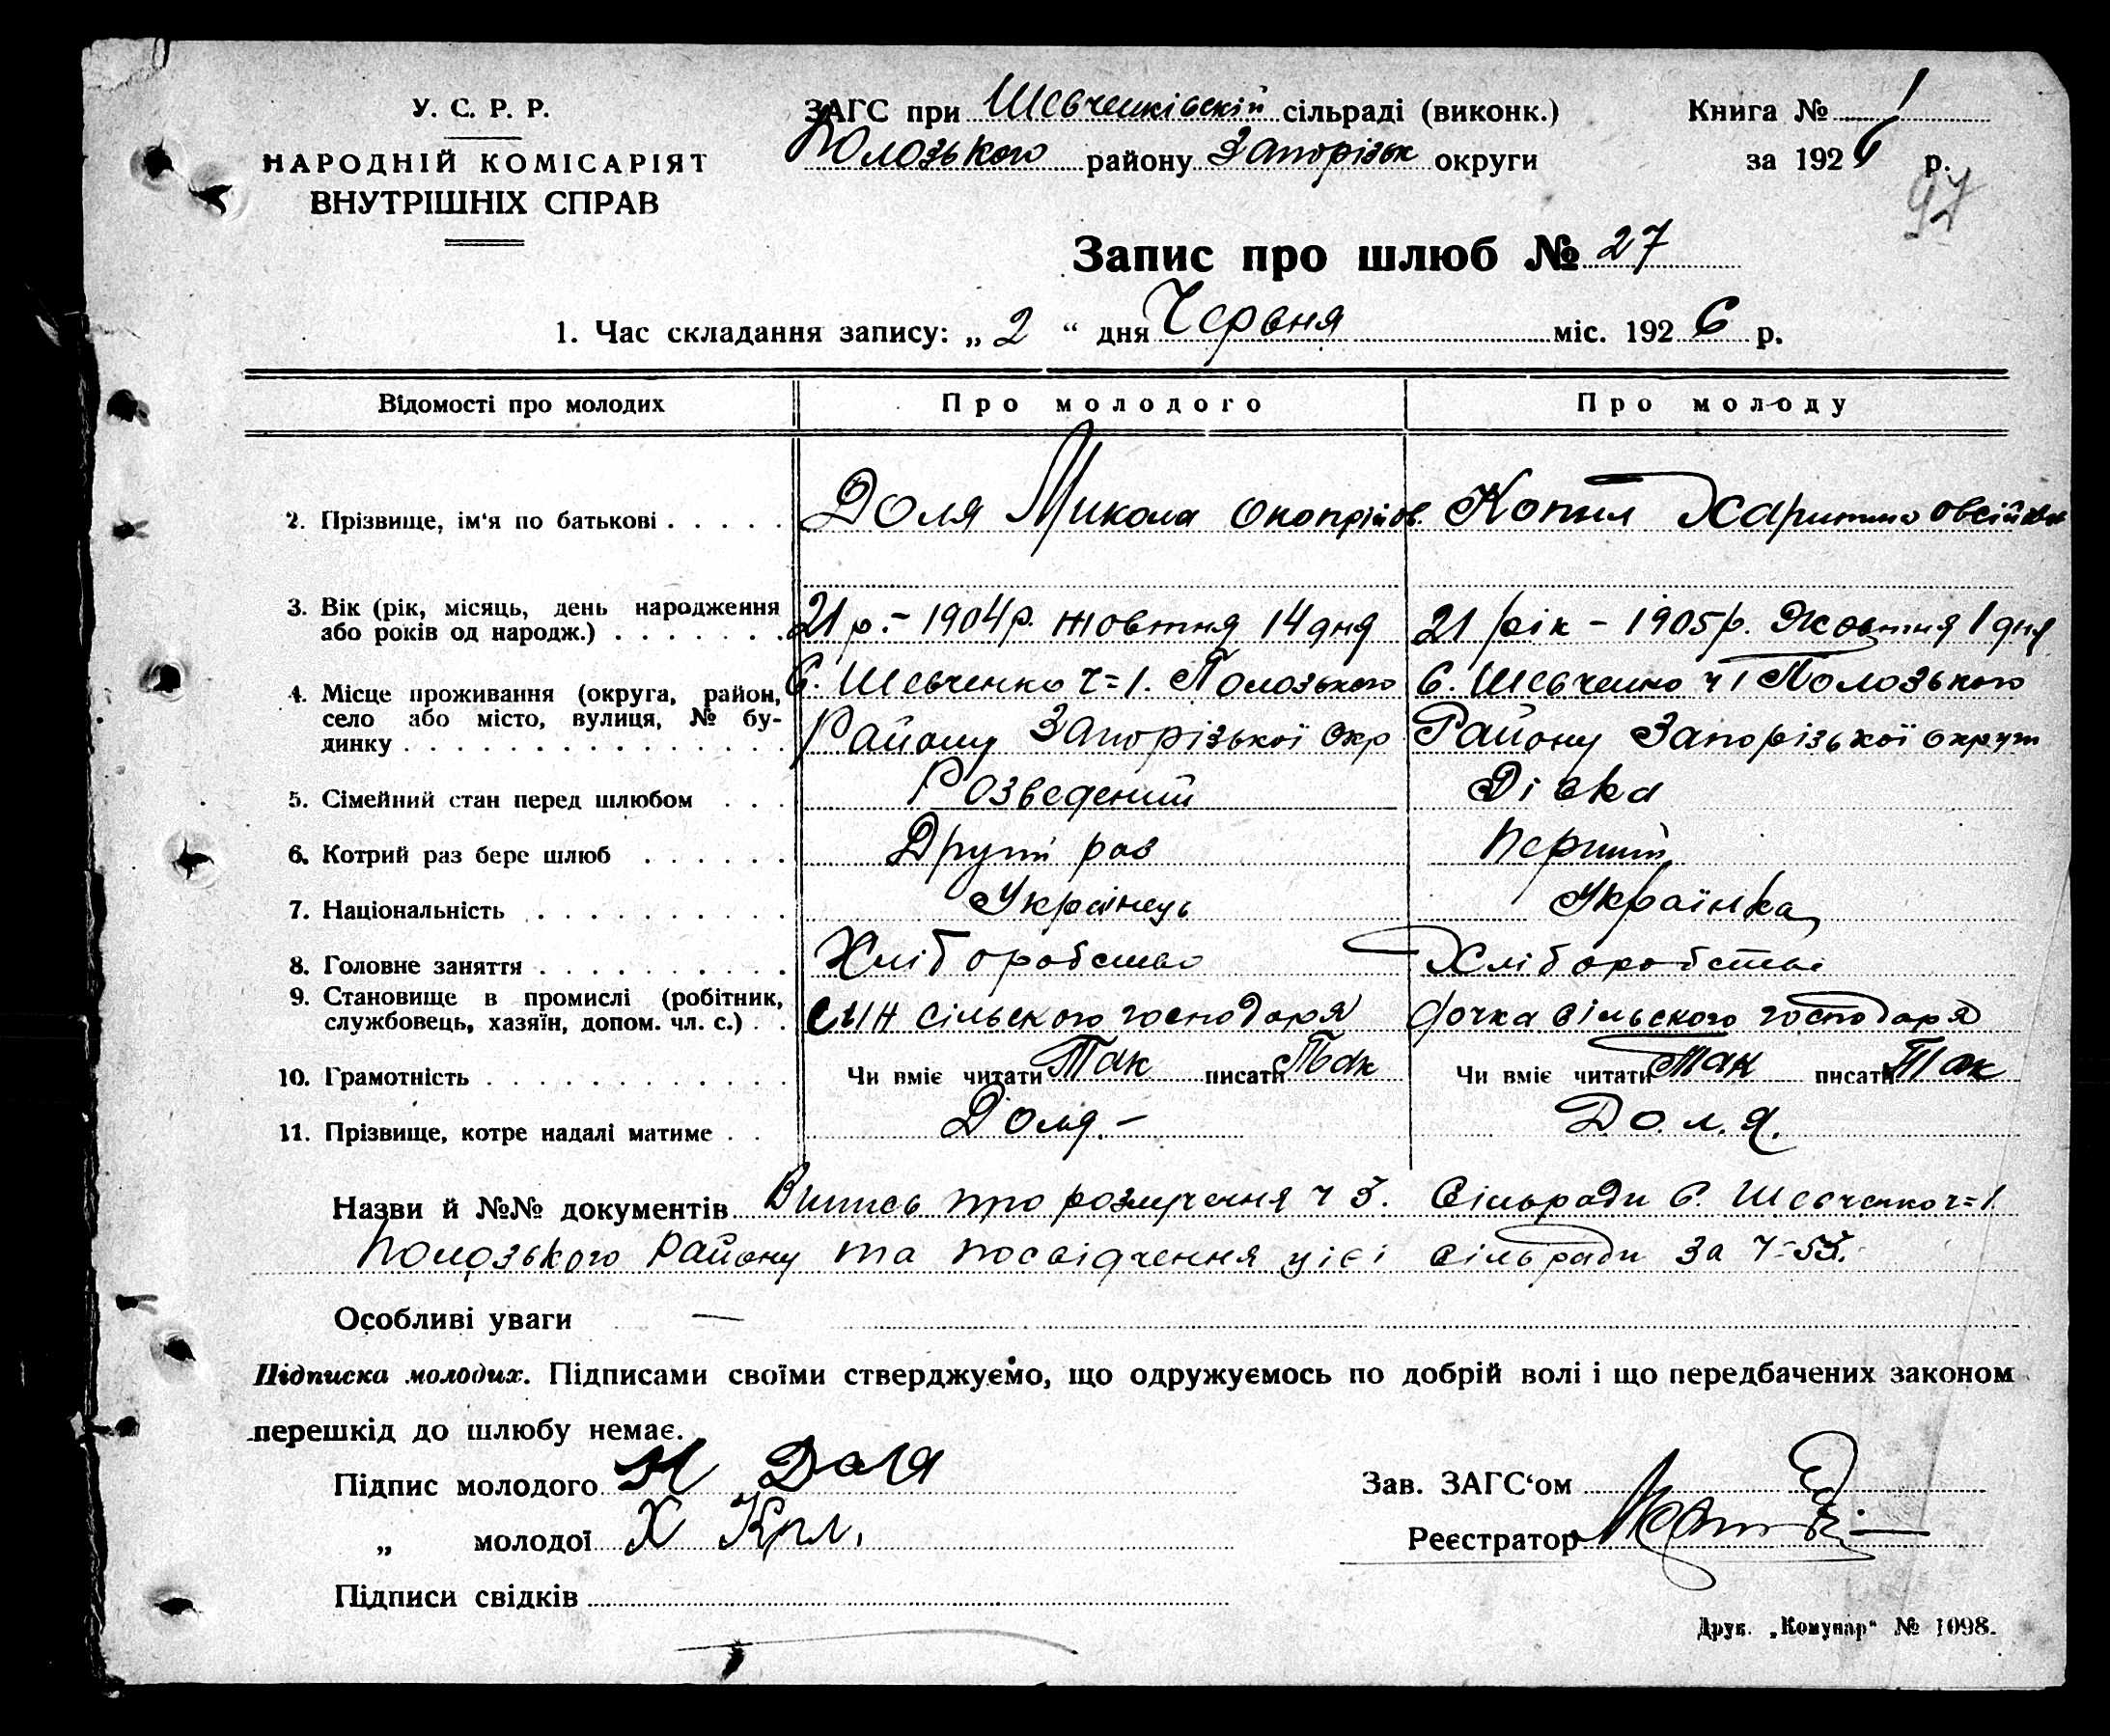 У. С. Р. Р.
НАРОДНІЙ КОМІСАРІЯТ
ВНУТРІШНІХ СПРАВ
ЗАГС при Шевченківскій сільраді (виконк.)
Полозького району Запорізьк округи
Книга № 1
за 1926 р.
97
Запис про шлюб № 27
1. Час складання запису: „ 2 “ дня Червня міс. 1926 р.
Відомості про молодих Про молодого Про молоду
2. Прізвище, ім'я по батькові . . . . . Доля Микола Копил Харитина Овсійвн
3. Вік (рік, місяць, день народження
або років од народж.) . . . . . . . 21 р. – 1904 р. жовтня 14 дня 21 рік – 1905 р. Жовтня 1 дня
4. Місце проживання (округа, район, С. Шевченко ч=1. Полозького С. Шевченко ч 1 Полозького
село або місто, вулиця, № бу-
динку . . . . . . . . . . . . . . . . Району Запорізької Окр Району Запорізької округи
5. Сімейний стан перед шлюбом . . . Розведений Дівка
6. Котрий раз бере шлюб . . . . . . Другий раз Перший
7. Національність . . . . . . . . . . Українець Українка
8. Головне заняття . . . . . . . . . . Хліборобство Хліборобство
9. Становище в промислі (робітник,
службовець, хазяїн, допом. чл. с.) . . син сільского господаря дочка сільского господаря
10. Грамотність . . . . . . . . . . . . Чи вміє читати Так писати Так Чи вміє читати Так писати Так
11. Прізвище, котре надалі матиме . . Доля. – Доля.
Назви й №№ документів Випись про розлучення ч 5. Сільради С. Шевченко ч=1.
Полозького Району та посвідчення цієі сільради за ч=55.
Особливі уваги —
Підписка молодих. Підписами своїми стверджуємо, що одружуємось по добрій волі і що передбачених законом
перешкід до шлюбу немає.
Підпис молодого Доля
„ молодої Х Кпл.
Підписи свідків
Зав. ЗАГС'ом
Реєстратор
Друк. „Комунар“ № 1098.